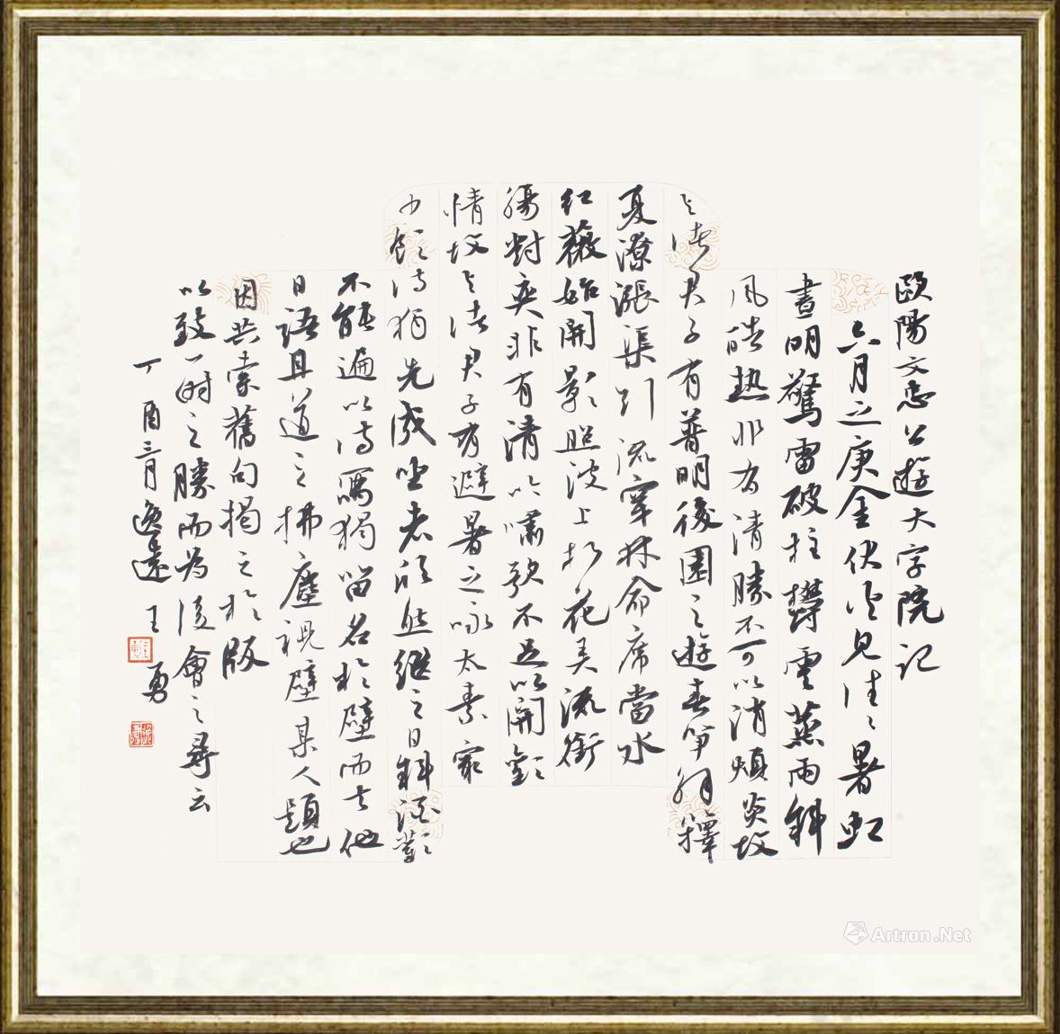 歐陽文忠公遊大字院记
六月之庚金伏火见往〻暑虹
晝明驚雷破柱鬱雲蒸雨斜
風酷热非有清勝不可以消煩炎故
与诸君子有普明後園之遊春笋解籜
夏潦漲渠引流穿林命席當水
红薇始開影照波上折花弄流銜
觴對奕非有清吟嘯歌不足以開歡
情故与诸君子有避暑之咏太素最
少飲诗独先成坐者欣然继之日斜酒歡
不能遍以诗寫獨留名於壁而去他
日語且道之拂塵視壁某人題也
因共索舊句揭之於版
以致一時之勝而為後會之尋云
丁酉三月逸遠王勇
Artron.Net